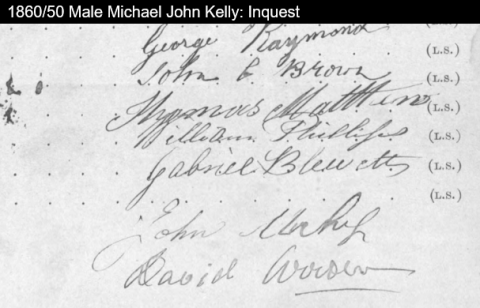 1860/50 Male Michael John Kelly: Inquest
George Raymond
(L.S.)
John C Brown (L.S.)
Thomas Matthew (L.S.)
William Phillips (L.S.)
Gabriel Blewett (L.S.)
(L.S.)
John
David